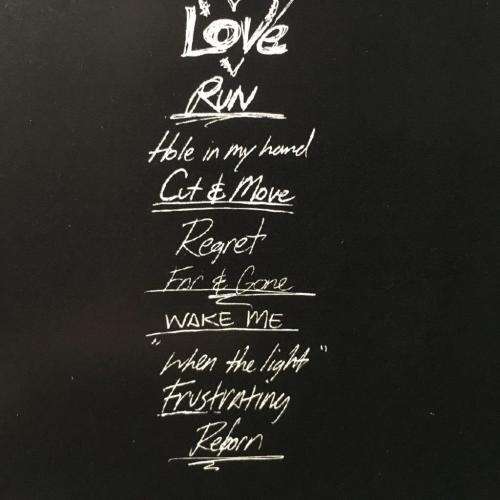 LOVE
RUN
Hole in my hand
Cut & Move
Regret
Far & Gone
WAKE ME
"when the light"
Frustrating
Reborn